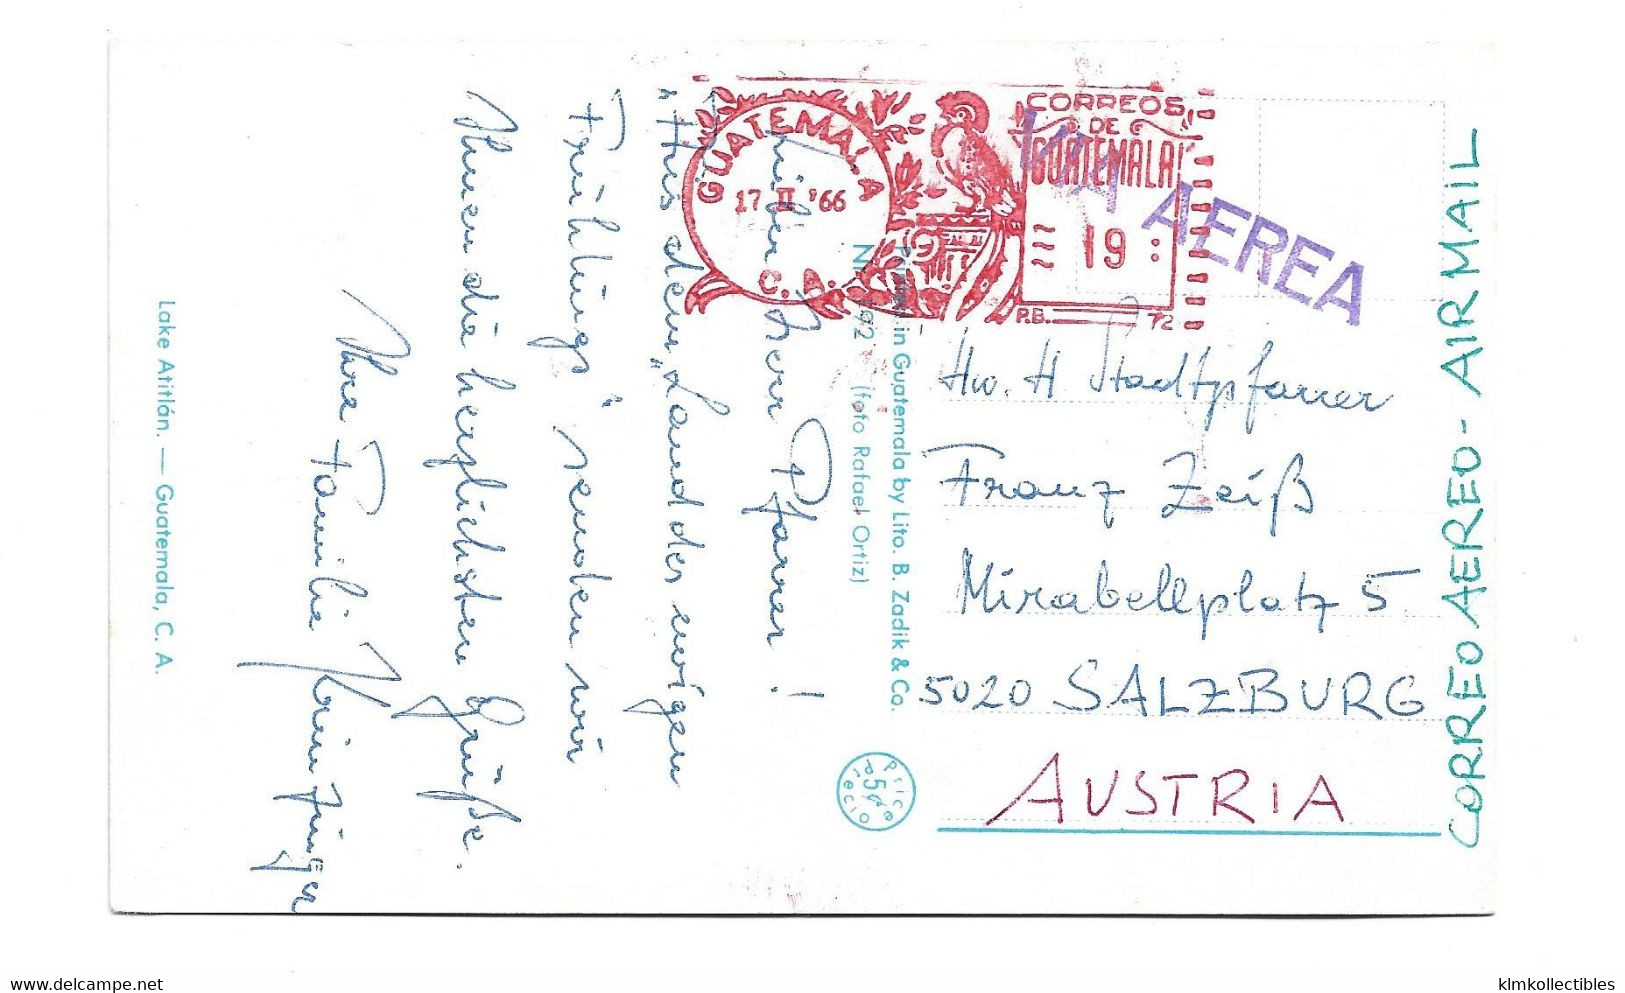 GUATEMALA
17 II '66
C. A.
CORREOS
DE
GUATEMALA
19
P.B. 72
VIA AEREA
CORREO AEREO - AIR MAIL
Lieber Herr Pfarrer!
Aus dem „Land des ewigen
Frühlings" senden wir
Ihnen die herzlichsten Grüße.
Ihre Familie
Hw. H Stadtpfarrer
Franz Zeiß
Mirabellplatz 5
5020 SALZBURG
AUSTRIA
Printed in Guatemala by Lito. B. Zadik & Co.
(foto Rafael Ortiz)
Price
5¢
Precio
Lake Atitlán. — Guatemala, C. A.
delcampe.net
klmkollectibles